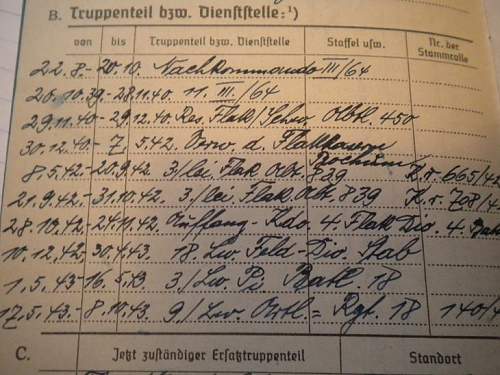 B. Truppenteil bzw. Dienststelle:¹)
von bis Truppenteil bzw. Dienststelle Staffel usw. Nr. der Stammrolle
22.8.-20.10. Nachkommando III/64
20.10.39.-28.11.40. 11. III/64
29.11.40-29.12.40. Res. Flak/Schw. Abtl. 450
30.12.40- 7 5.42. d.
8.5.42.-20.9.42. 3/lei Flak Abt. 839 K.r. 665/42
21.9.42.-31.10.42. 3/lei. Flak. Abt. 839 K.r. 708/4
28.10.42-24.11.42. Auffang-Kdo. 4. Flak Div. 4.
10.12.42,-30.4.43. 18. Lw. Feld-Div. Stab
1.5.43-16.5.43 3./Lw. Pi Batl. 18
17.5.43.-8.10.43. 9/Lw. Artl.= Rgt. 18 140/4
C. Jetzt zuständiger Ersatztruppenteil Standort